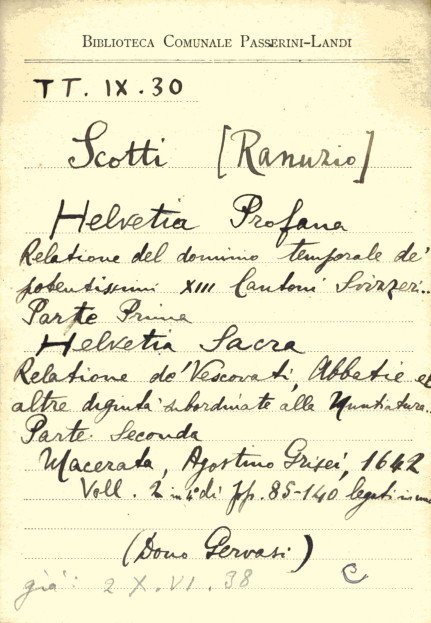 BIBLIOTECA COMUNALE PASSERINI-LANDI
TT. IX. 30
Scotti [Ranuzio]
Helvetia Profana
Relatione del dominio temporale de'
potentissimi XIII Cantoni Svizzeri..
Parte Prima
Helvetia Sacra
Relatione de' Vescovati, Abbatie et
altre dignità subordinate alla Nuntiatura..
Parte Seconda
Macerata, Agostino Grisei, 1642
Voll. 2 in 4° di pp. 85-140 legati in uno
(Dono Gervasi)
già: 2 X. VI. 38 C